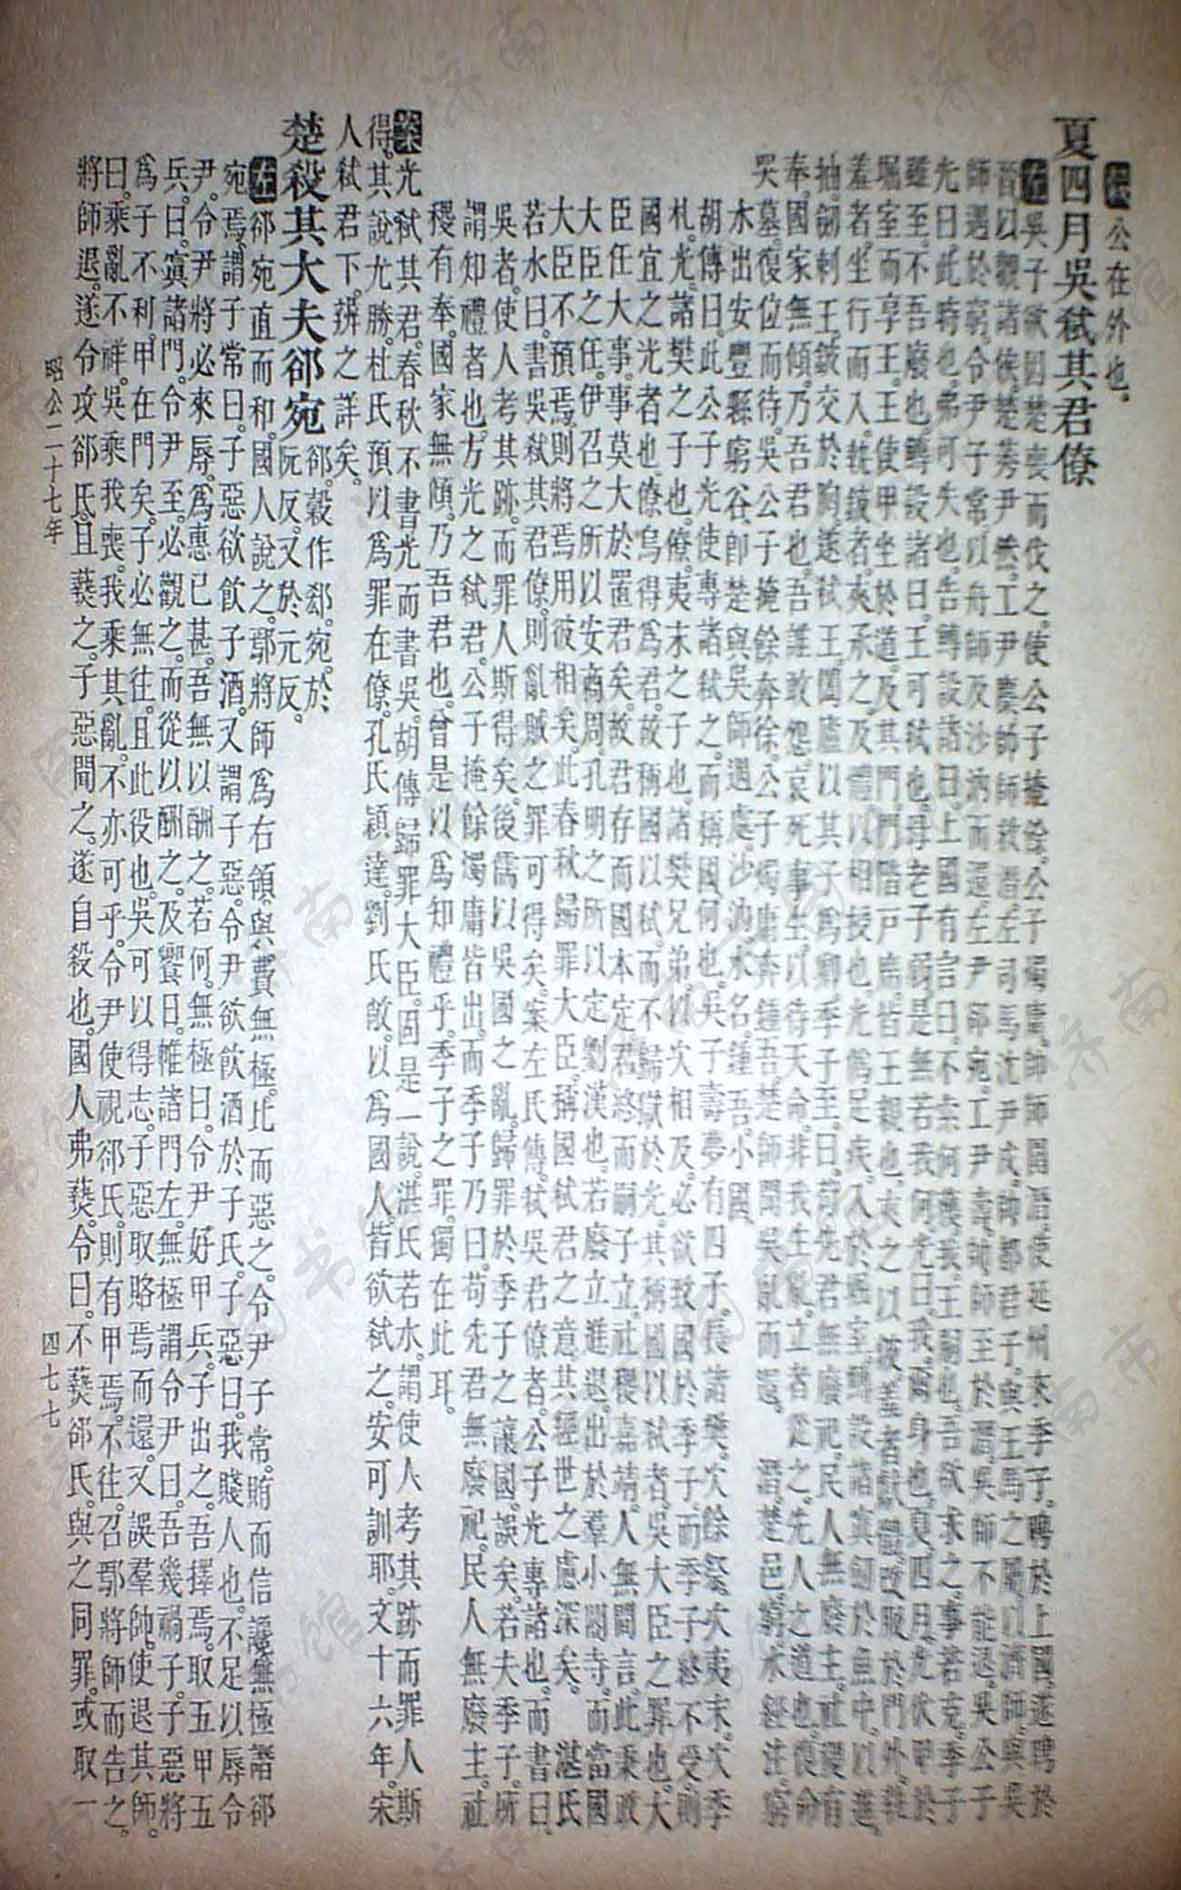 左公在外也。
夏四月吳弒其君僚
左吳子欲因楚喪而伐之。使公子掩餘。公子燭庸。帥師圍潛。使延州來季子。聘於上國。遂聘於
晉以觀諸侯。楚莠尹然。工尹麇帥師救潛。左司馬沈尹戌。帥都君子。與王馬之屬以濟師。與吳
師遇於窮。令尹子常。以舟師及沙汭而還。左尹郤宛。工尹壽。帥師至於潛。吳師不能退。吳公子
光曰。此時也。弗可失也。告鱄設諸曰。上國有言曰。不索何獲。我王嗣也。吾欲求之。事若克。季子
雖至。不吾廢也。鱄設諸曰。王可弒也。母老子弱。是無若我何。光曰。我爾身也。夏四月。光伏甲於
堀室而享王。王使甲坐於道。及其門。門階戶席。皆王親也。夾之以鈹。羞者獻體。改服於門外。執
羞者坐行而入。執鈹者。夾承之。及體以相授也。光僞足疾。入於堀室。鱄設諸寘劒於魚中。以進。
抽劒刺王。鈹交於胸。遂弒王。闔廬以其子爲卿。季子至。曰。苟先君無廢祀。民人無廢主。社稷有
奉。國家無傾。乃吾君也。吾誰敢怨。哀死事生。以待天命。非我生亂。立者從之。先人之道也。復命
哭墓。復位而待。吳公子掩餘奔徐。公子燭庸奔鍾吾。楚師聞吳亂而還。潛。楚邑。窮。水經注。窮
水出安豐縣窮谷。卽楚與吳師遇處。沙汭。水名。鍾吾。小國。
胡傳曰。此公子光使專諸弒之。而稱國何也。吳子壽夢有四子。長諸樊。次餘祭。次夷末。次季
札。光。諸樊之子也。僚。夷末之子也。諸樊兄弟。以次相及。必欲致國於季子。而季子終不受。則
國宜之光者也。僚烏得爲君。故稱國以弒。而不歸獄於光。其稱國以弒者。吳大臣之罪也。大
臣任大事。事莫大於置君矣。故君存而國本定。君終而嗣子立。社稷嘉靖。人無間言。此秉政
大臣之任。伊召之所以安商周。孔明之所以定劉漢也。若廢立進退。出於羣小閽寺。而當國
大臣不預焉。則將焉用彼相矣。此春秋歸罪大臣。稱國弒君之意。其經世之慮深矣。湛氏
若水曰。書吳弒其君僚。則亂賊之罪可得矣。案左氏傳。弒吳君僚者。公子光專諸也。而書曰
吳者。使人考其跡。而罪人斯得矣。後儒以吳國之亂。歸罪於季子之讓國。誤矣。若夫季子。所
謂知禮者也。方光之弒君。公子掩餘燭庸皆出。而季子乃曰。苟先君無廢祀。民人無廢主。社
稷有奉。國家無傾。乃吾君也。曾是以爲知禮乎。季子之罪。獨在此耳。
案光弒其君。春秋不書光而書吳。胡傳歸罪大臣。固是一說。湛氏若水。謂使人考其跡而罪人斯
得。其說尤勝。杜氏預以爲罪在僚。孔氏穎達。劉氏敞。以爲國人皆欲弒之。安可訓耶。文十六年。宋
人弒君下。辨之詳矣。
楚殺其大夫郤宛郤。穀作郄。宛。於
阮反。又於元反。
左郤宛直而和。國人說之。鄢將師爲右領。與費無極。比而惡之。令尹子常。賄而信讒。無極譖郤
宛焉。謂子常曰。子惡欲飮子酒。又謂子惡。令尹欲飮酒於子氏。子惡曰。我賤人也。不足以辱令
尹。令尹將必來辱。爲惠已甚。吾無以酬之。若何。無極曰。令尹好甲兵。子出之。吾擇焉。取五甲五
兵。曰。寘諸門。令尹至。必觀之。而從以酬之。及饗日。帷諸門左。無極謂令尹曰。吾幾禍子。子惡將
爲子不利。甲在門矣。子必無往。且此役也。吳可以得志。子惡取賂焉而還。又誤羣帥。使退其師。
曰。乘亂不祥。吳乘我喪。我乘其亂。不亦可乎。令尹使視郤氏。則有甲焉。不往。召鄢將師而告之。
將師退。遂令攻郤氏。且爇之。子惡聞之。遂自殺也。國人弗爇。令曰。不爇郤氏。與之同罪。或取一
昭公二十七年
四七七